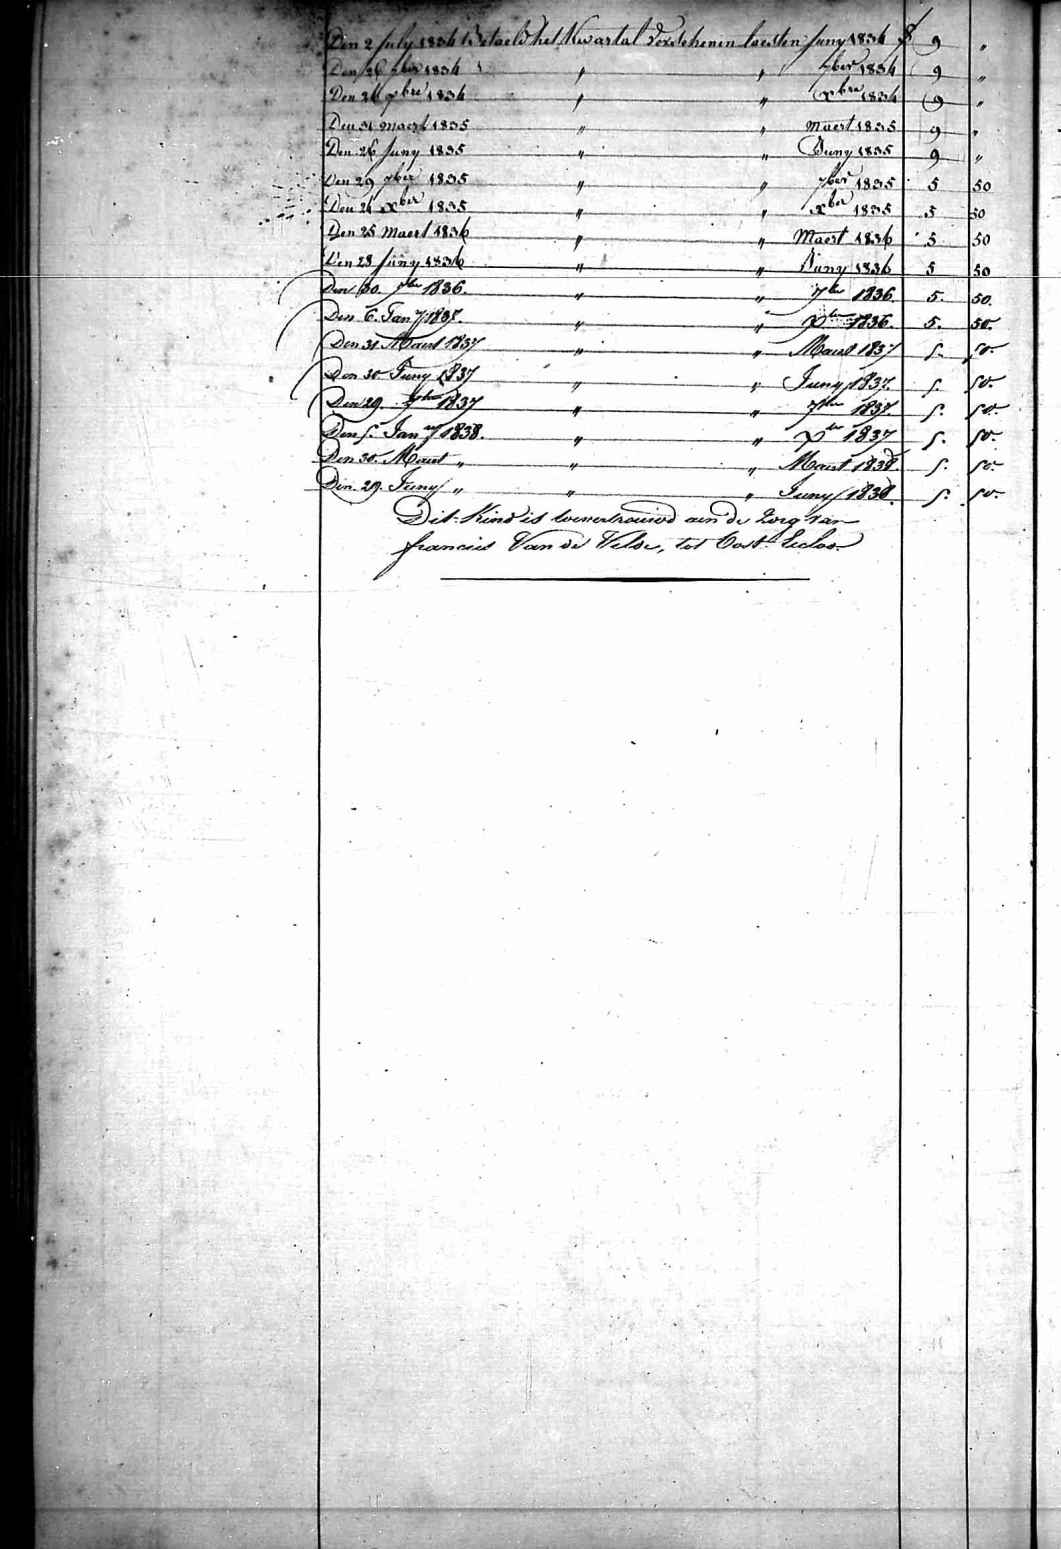 Den 2 July 1834 betaeld het Kwartal verschenen laesten Juny 1834 9 "
Den 26 7ber 1834 " " 7ber 1834 9 "
Den 26 xbre 1834 " " xbre 1834 9 "
Den 31 Maert 1835 " " Maert 1835 9 "
Den 26 Juny 1835 " " Juny 1835 9 "
Den 29 7ber 1835 " " 7ber 1835 5 50
Den 21 xber 1835 " " xber 1835 5 50
Den 25 Maert 1836 " " Maert 1836 5 50
Den 28 Juny 1836 " " Juny 1836 5 50
Den 30. 7ber 1836. " " 7ber 1836. 5. 50.
Den 6. Jany 1837. " " xber 1836. 5. 50.
Den 31 Maert 1837 " " Maert 1837 5. 50.
Den 30 Juny 1837 " " Juny 1837. 5. 50.
Den 29. 7ber 1837 " " 7ber 1837. 5. 50.
Den 5. Jany 1838. " " xber 1837 5. 50.
Den 30. Maert " " " Maert 1838. 5. 50.
Den 29. Juny " " " Juny 1838. 5. 50.
Dit Kind is toevertrouwd aen de zorg van
francies Van de Velde, tot Oost Eecloo.